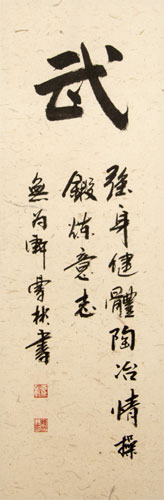 武
強身健體陶冶情操
鍛煉意志
無為軒
書